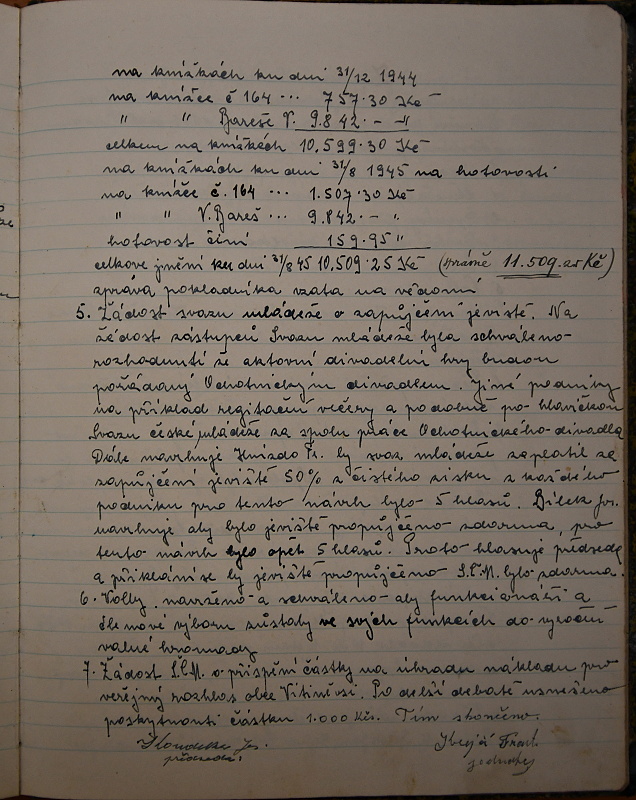 na knížkách ku dni 31/12 1944
na knížce č 164 ... 757.30 Kč
" " Bareše V. 9.842.- "
celkem na knížkách 10,599.30 Kč
na knížkách ku dni 31/8 1945 na hotovosti
na knížce č. 164 ... 1.507.30 Kč
" " V. Bareš ... 9.842.- "
hotovost činí 159.95 "
celkove jmění ku dni 31/8 45 10,509.25 Kč (správně 11.509.25 Kč)
zpráva pokladníka vzata na vědomí
5. Žádost svazu mládeže o zapůjčení jeviště. Na
žádost zástupců Svazu mládeže byla schváleno
rozhodnutí že aktovní divadelní hry budou
pořádány Ochotnickým divadlem. Jiné podniky
na příklad regitační večery a podobné po hlavičkou
Svazu české mládeže za spolu práce Ochotnického divadla
Dále navrhuje Hnízdo Fr. by svaz mládeže zaplatil za
zapůjčení jeviště 50% z čistého zisku z každého
podniku pro tento návrh bylo 5 hlasů. Bílek Jos.
navrhuje aby bylo jeviště propůjčeno zdarma, pro
tento návrh bylo opět 5 hlasů. Proto hlasuje předseda
a přiklání se by jeviště propůjčeno S.Č.M. bylo zdarma.
6. Volby, navrženo a schváleno aby funkcionáři a
členové výboru zůstaly ve svých funkcích do výroční
valné hromady
7. Žádost S.Č.M. o přispění částky na úhradu nákladu pro
veřejný rozhlas obce Vitiněvsi. Po delší debatě usneseno
poskytnouti částku 1.000 Kčs. Tím skončeno.
Jos.
předseda: jednatel